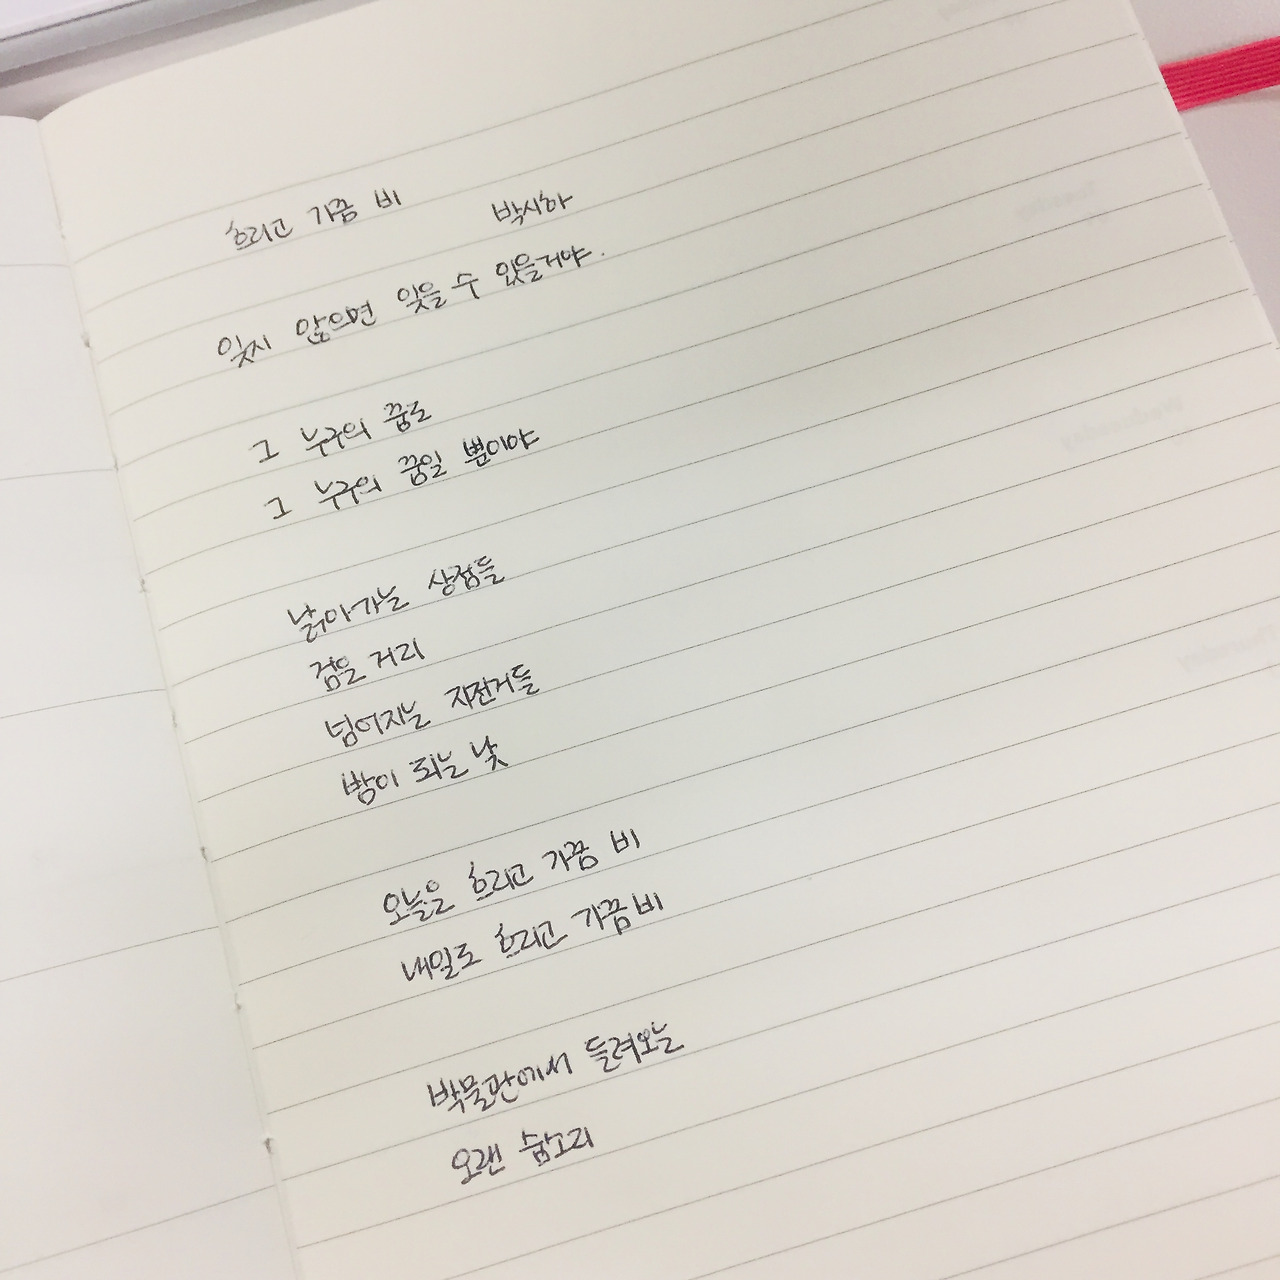 흐리고 가끔 비 박시하
잊지 않으면 잊을 수 있을거야.
그 누구의 꿈도
그 누구의 꿈일 뿐이야
낡아가는 상점들
검은 거리
넘어지는 자전거들
밤이 되는 낮
오늘은 흐리고 가끔 비
내일도 흐리고 가끔 비
박물관에서 들려오는
오랜 숨소리